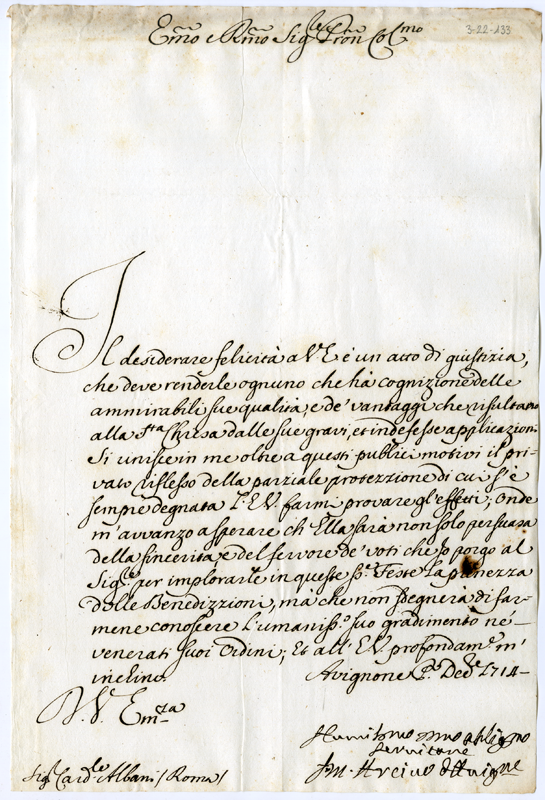 Em̃o e Rm̃o Sig.re Pron̄ Col.mo
3-22-133
Il desiderare felicità a V.E. è un atto di giustizia,
che deve renderle ognuno che hà cognizione delle
ammirabili sue qualità, e de' vantaggi che risultano
alla S.ta Chiesa dalle sue gravi, et indefesse applicazioni.
Si unisce in me oltre a questi publici motivi il pri-
vato riflesso della parziale protezzione di cui s'è
sempre degnata l'E.V. farmi provare gl'effetti; onde
m'avvanzo a sperare ch'Ella sarà non solo persuasa
della sincerità, e del fervore de' voti che Io porgo al
Sig.re per implorarle in queste S.e Feste la pienezza
delle Benedizzioni, ma che non isdegnerà di far-
mene conoscere l'umaniss.o suo gradimento ne-
venerati suoi Ordini; Et all'E.V. profondam.e m'
inchino. Avignone P.o Dec.re 1714-
D. V. Em.za
Humil.mo
servitore
Sig.r Card.le Albani / Roma /